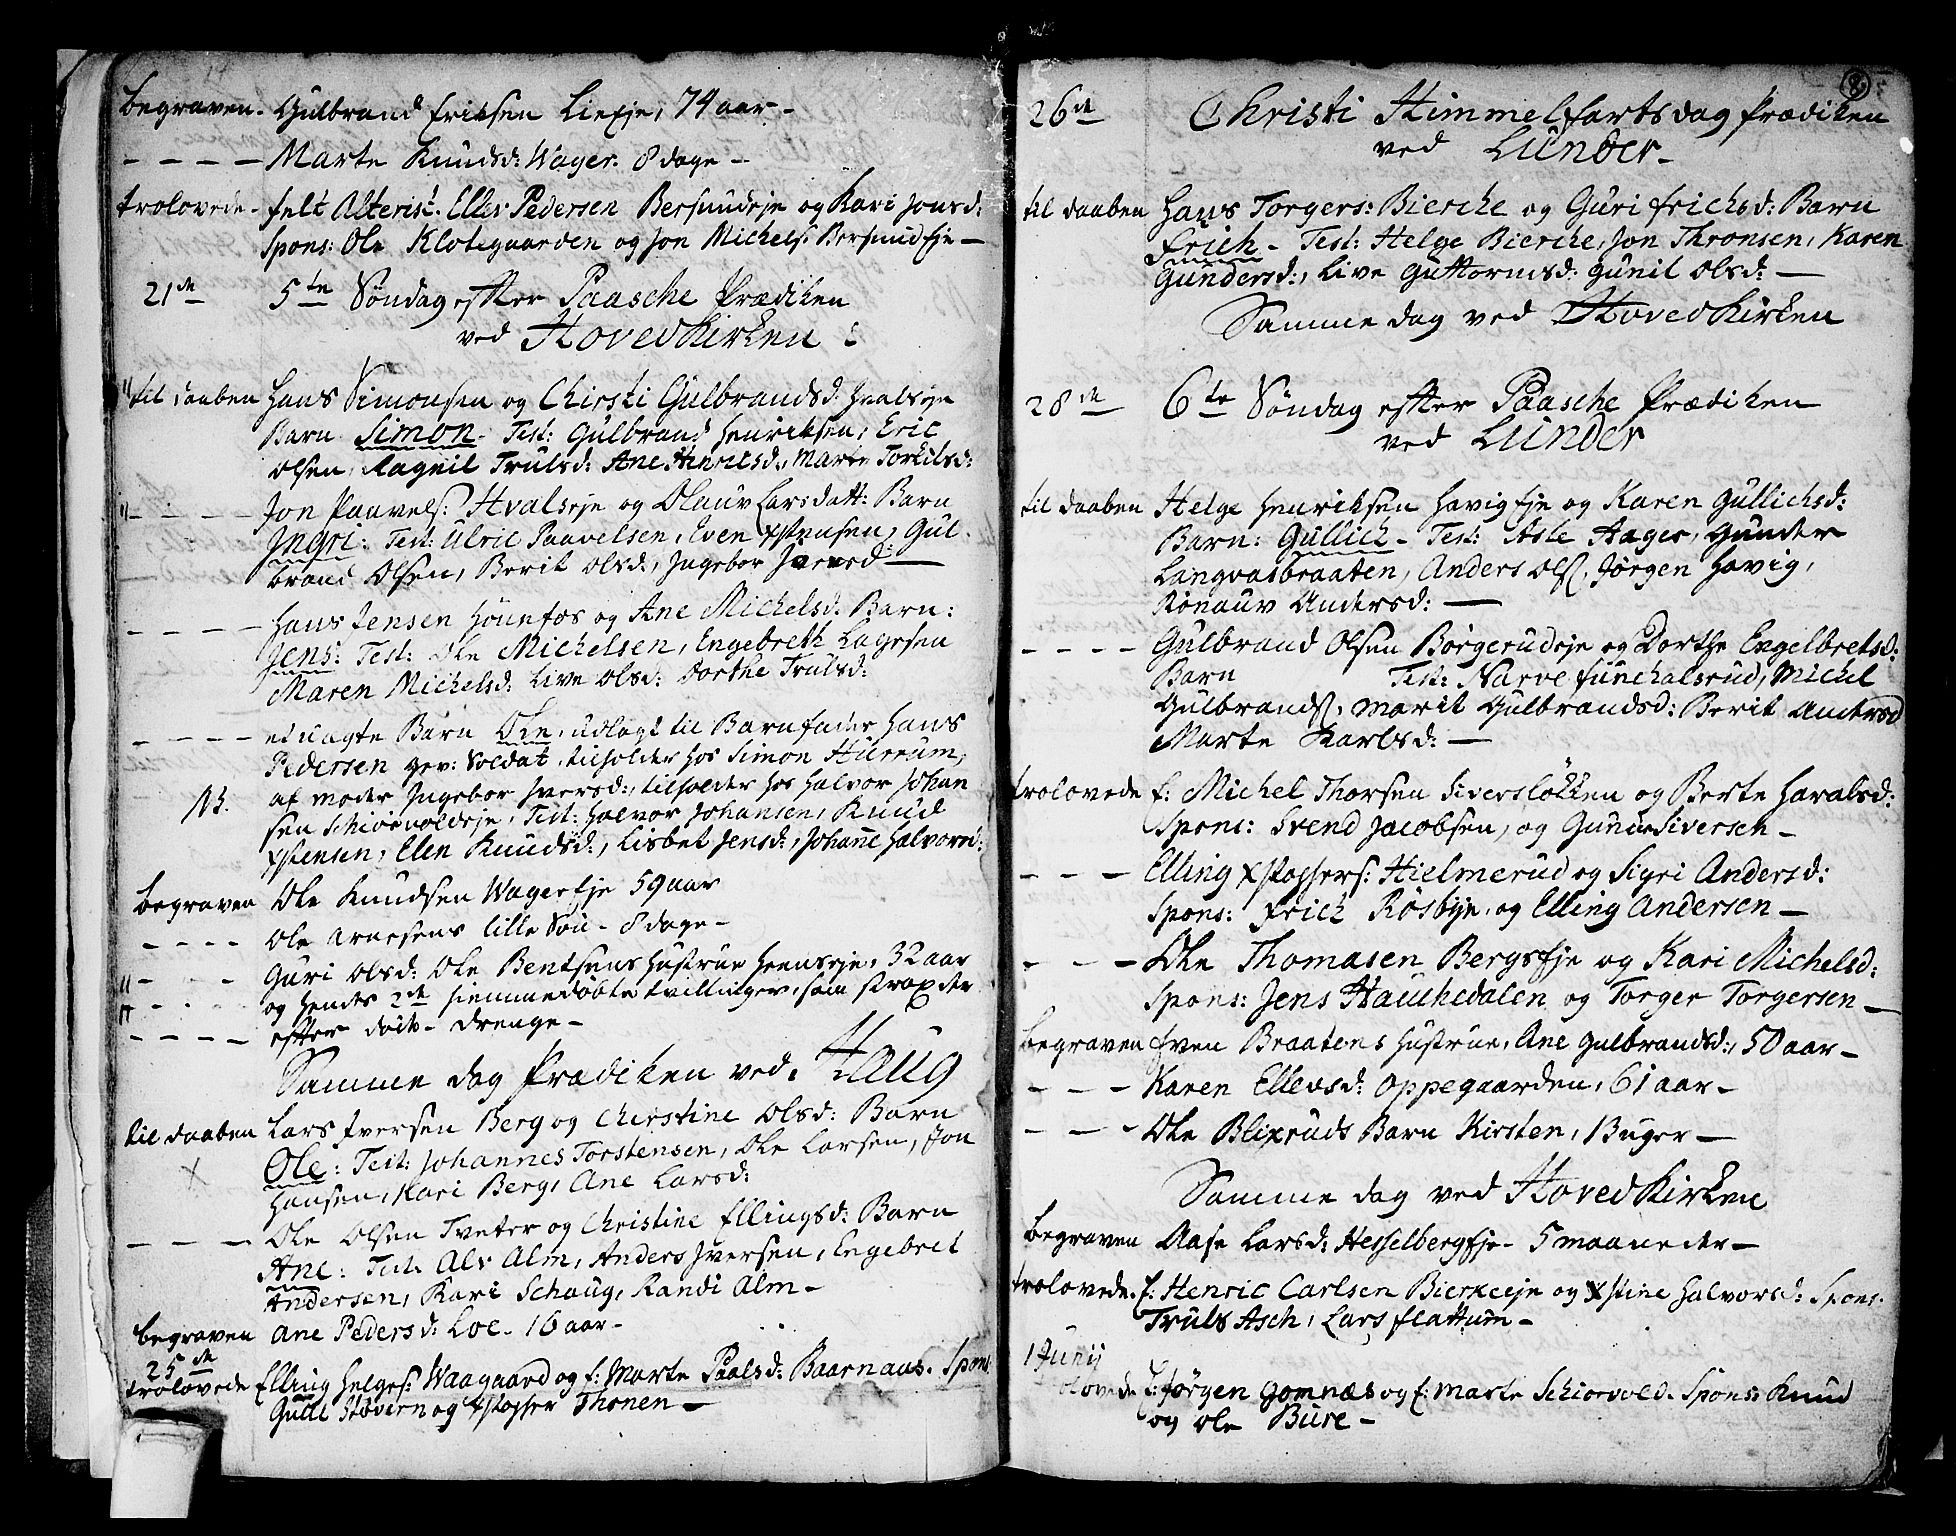 begraven. Gulbrand Eriksen Lieeje, 74 aar –
– – – – Marte Knudsd: Wager. 8 dage –
trolovede – Pedersen Bersundeje og Kari Jonsd:
Spons: Ole Klotegaarden og Jon Michels: Bersundeje –
21de 5te Søndag efter Paasche Prædiken
ved Hovedkirken
til daaben Hans Simonsen og Chirsti Gulbrandsd: Hvalseje
Barn Simon – Test: Gulbrand Henriksen, Eric
Olsen, Ragnil Trulsd: Ane Henricsd:, Marte Torkilsd:
– – – – Jon Paavels: Hvalseje og Olauv Larsdatt: Barn
Ingri: Test: Ulric Paavelsen, Even Xstensen, Gul-
brand Olsen, Berit Olsd:, Ingebor Iversd: —
– – – – Hans Jensen Hønnefos og Ane Michelsd: Barn:
Jens: Test: Ole Michelsen, Engebreth Lagesen
Maren Michelsd: Live Olsd: Dorthe Trulsd:
– – – – et uægte Barn Ole, udlagt til Barnefader Hans
Pedersen gev: Soldat, tilholder hos Simon Hurrum,
NB. af moder Ingebor Iversd:, tilholder hos Halvor Johan
sen Schiørvoldeje, Test: Halvor Johansen, Knud
Xstensen, Elen Knudsd:, Lisbet Jensd:, Johanne Halvorsd:
begraven Ole Knudsen Wagereje 59 aar
– – – – Ole Arnesens lille Søn – 8 dage –
– – – Guri Olsd: Ole Bentsens Hustrue Heenseje, 32 aar
– – – og hendes 2de hiemmedøbte tvillinger, som strax der
– – – – efter døde – drenge –
Samme dag Prædiken ved Haug
til daaben Lars Iversen Berg og Cherstine Olsd: Barn
Ole: Test: Johannes Torstensen, Ole Larsen, Jon
Hansen, Kari Berg, Ane Larsd:
– – – Ole Olsen Tveter og Christine Ellingsd: Barn
Ane: Test: Alv Alm, Anders Iversen, Engebret
Andersen, Kari Schaug, Randi Alm –
begraven Ane Pedersd: Loe – 16 aar –
25de
trolovede Elling Helges: Waagaard og f: Marte Paalsd: Baarnaas. Spons
Støvern og Xstopher Thonen —
8
26de Christi Himmelfarts dag Prædiken
ved Lunder –
til daaben Hans Torgers: Bierche og Guri Erichsd: Barn
Erich – Test: Helge Bierche, Jon Thronsen, Karen
Gundersd:, Live Guttormsd: Gunil Olsd: —
Samme dag ved Hovedkirken
28de 6te Søndag efter Paasche Prædiken
ved Lunder
til daaben Helge Henriksen Havigeje og Karen Gullichsd:
Barn: Gullich – Test: Asle Hager, Gunder
Langvasbraaten, Anders Ols:, Jørgen Havig,
Rønauv Andersd: —
– – – – Gulbrand Olsen Børgerudeje og Dorthe Engelbretsd:
Barn Test: Narve Funchalsrud, Michel
Gulbrands:, Marit Gulbrandsd: Berit Andersd
Marte Karlsd: —
trolovede f: Michel Thorsen Siversløkken og Berte Haralsd:
Spons: Svend Jacobsen, og Gunder Siversen –
– – – Elling Xstophers: Hielmerud og Sigri Andersd:
Spons: Erich Røsbye, og Elling Andersen –
– – – Ole Thomasen Bergseje og Kari Michelsd:
Spons: Jens Hauchedalen og Torger Torgersen –
begraven Even Braatens Hustrue, Ane Gulbrandsd:, 50 aar –
– – – Karen Ellevsd: Oppegaarden, 61 aar –
– – – Ole Blixruds Barn Kirsten, 1 Uger —
Samme dag ved Hovedkirken
begraven Aase Larsd: Hesselbergeje – 5 maaneder –
trolovede. f: Henric Carlsen Bierkeeje og Xstine Halvorsd: Spons.
Truls Asch, Lars Flattum –
1 Junij
olovede f: Jørgen Gomnæs og f: Marte Schiørvold. Spons: Knud
og Ole Bure –